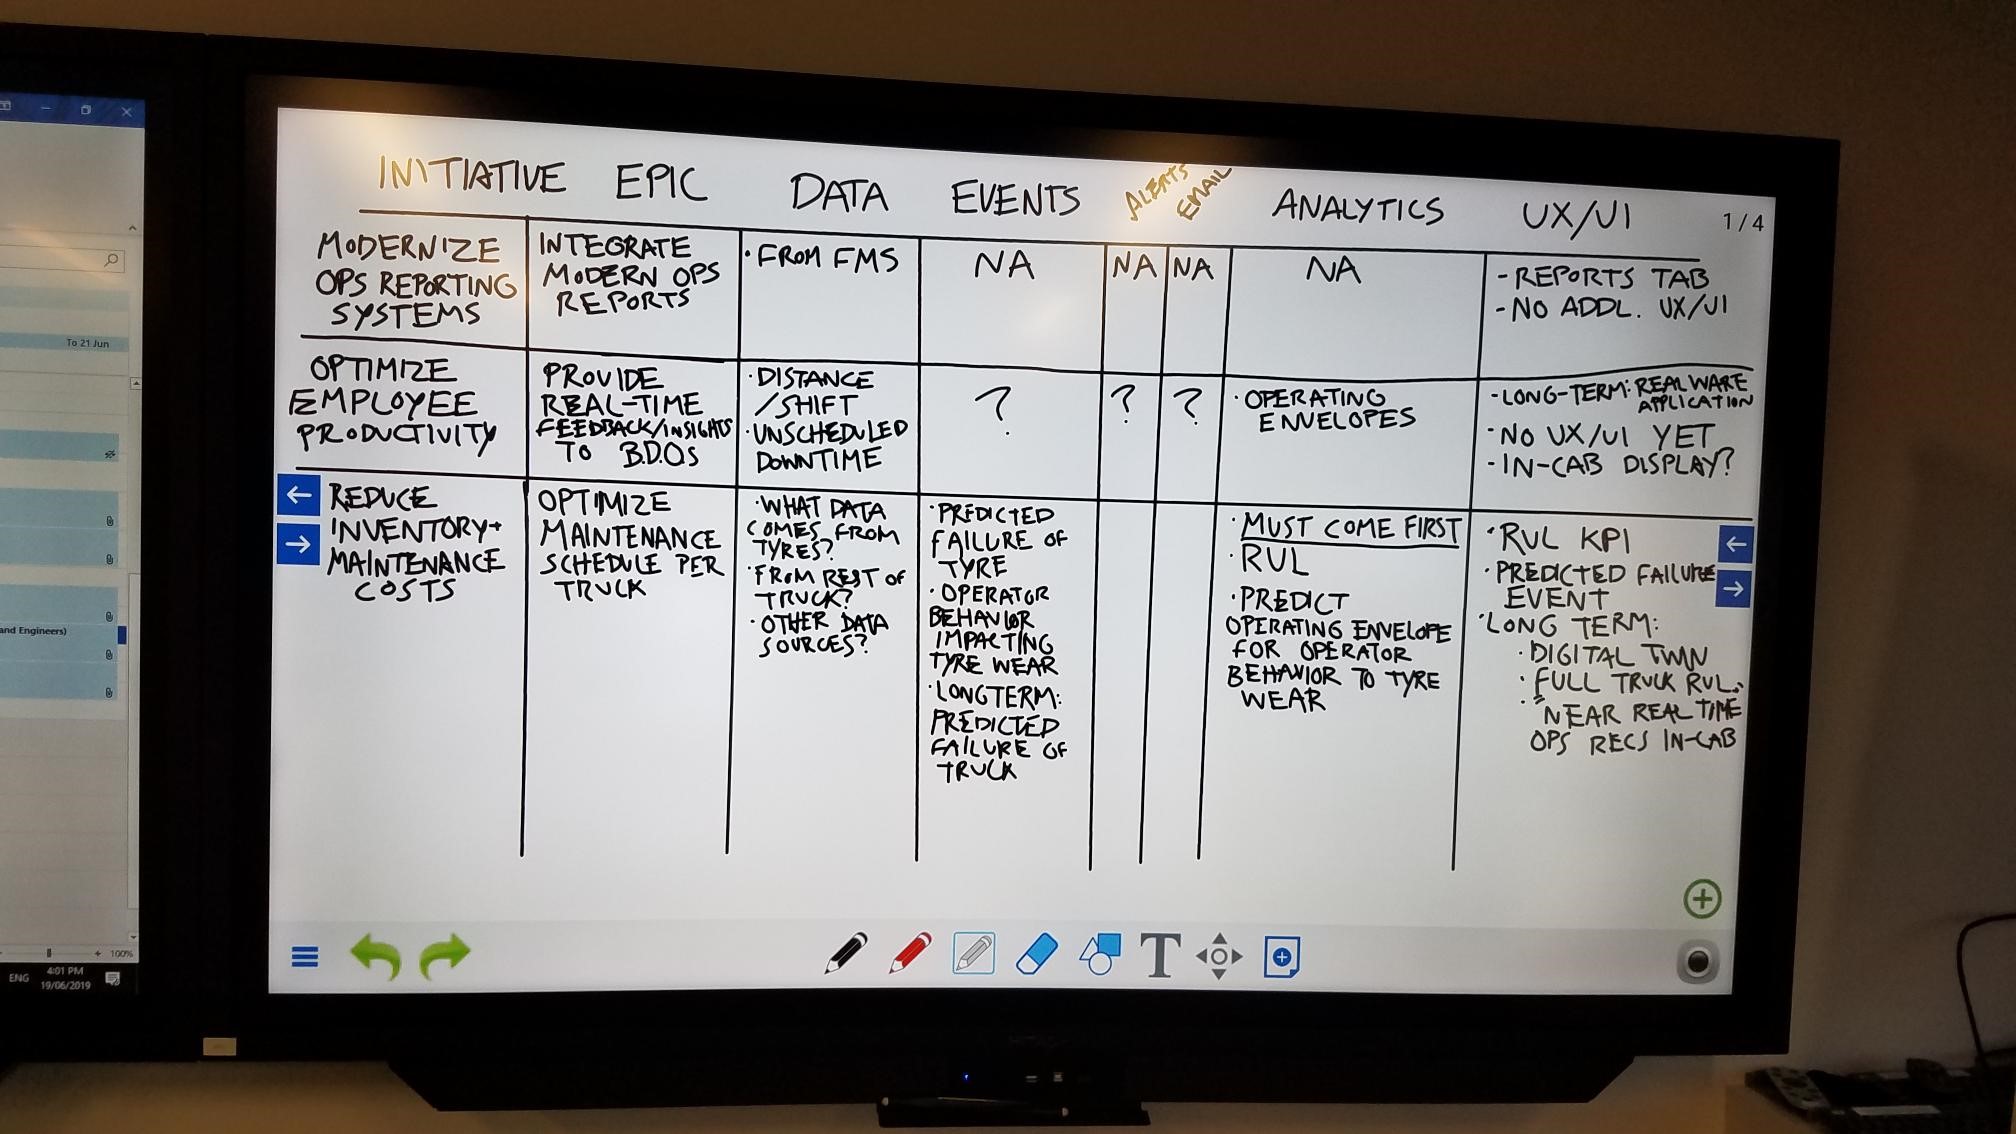 INITIATIVE EPIC DATA EVENTS ALERTS EMAIL ANALYTICS UX/UI 1/4
MODERNIZE
OPS REPORTING
SYSTEMS
INTEGRATE
MODERN OPS
REPORTS
· FROM FMS
NA
NA
NA
NA
- REPORTS TAB
- NO ADDL. UX/UI
OPTIMIZE
EMPLOYEE
PRODUCTIVITY
PROVIDE
REAL-TIME
FEEDBACK/INSIGHTS
TO B.D.O.S
· DISTANCE
/SHIFT
· UNSCHEDULED
DOWNTIME
?
?
?
· OPERATING
ENVELOPES
- LONG-TERM: REALWARE
APPLICATION
- NO UX/UI YET
- IN-CAB DISPLAY?
REDUCE
INVENTORY+
MAINTENANCE
COSTS
OPTIMIZE
MAINTENANCE
SCHEDULE PER
TRUCK
· WHAT DATA
COMES FROM
TYRES?
· FROM REST OF
TRUCK?
· OTHER DATA
SOURCES?
· PREDICTED
FAILURE OF
TYRE
· OPERATOR
BEHAVIOR
IMPACTING
TYRE WEAR
· LONGTERM:
PREDICTED
FAILURE OF
TRUCK
· MUST COME FIRST
· RUL
· PREDICT
OPERATING ENVELOPE
FOR OPERATOR
BEHAVIOR TO TYRE
WEAR
· RUL KPI
· PREDICTED FAILURE
EVENT
· LONG TERM:
· DIGITAL TWIN
· FULL TRUCK RUL
· NEAR REAL TIME
OPS RECS IN-CAB
T
To 21 Jun
and Engineers)
100%
ENG
4:01 PM
19/06/2019